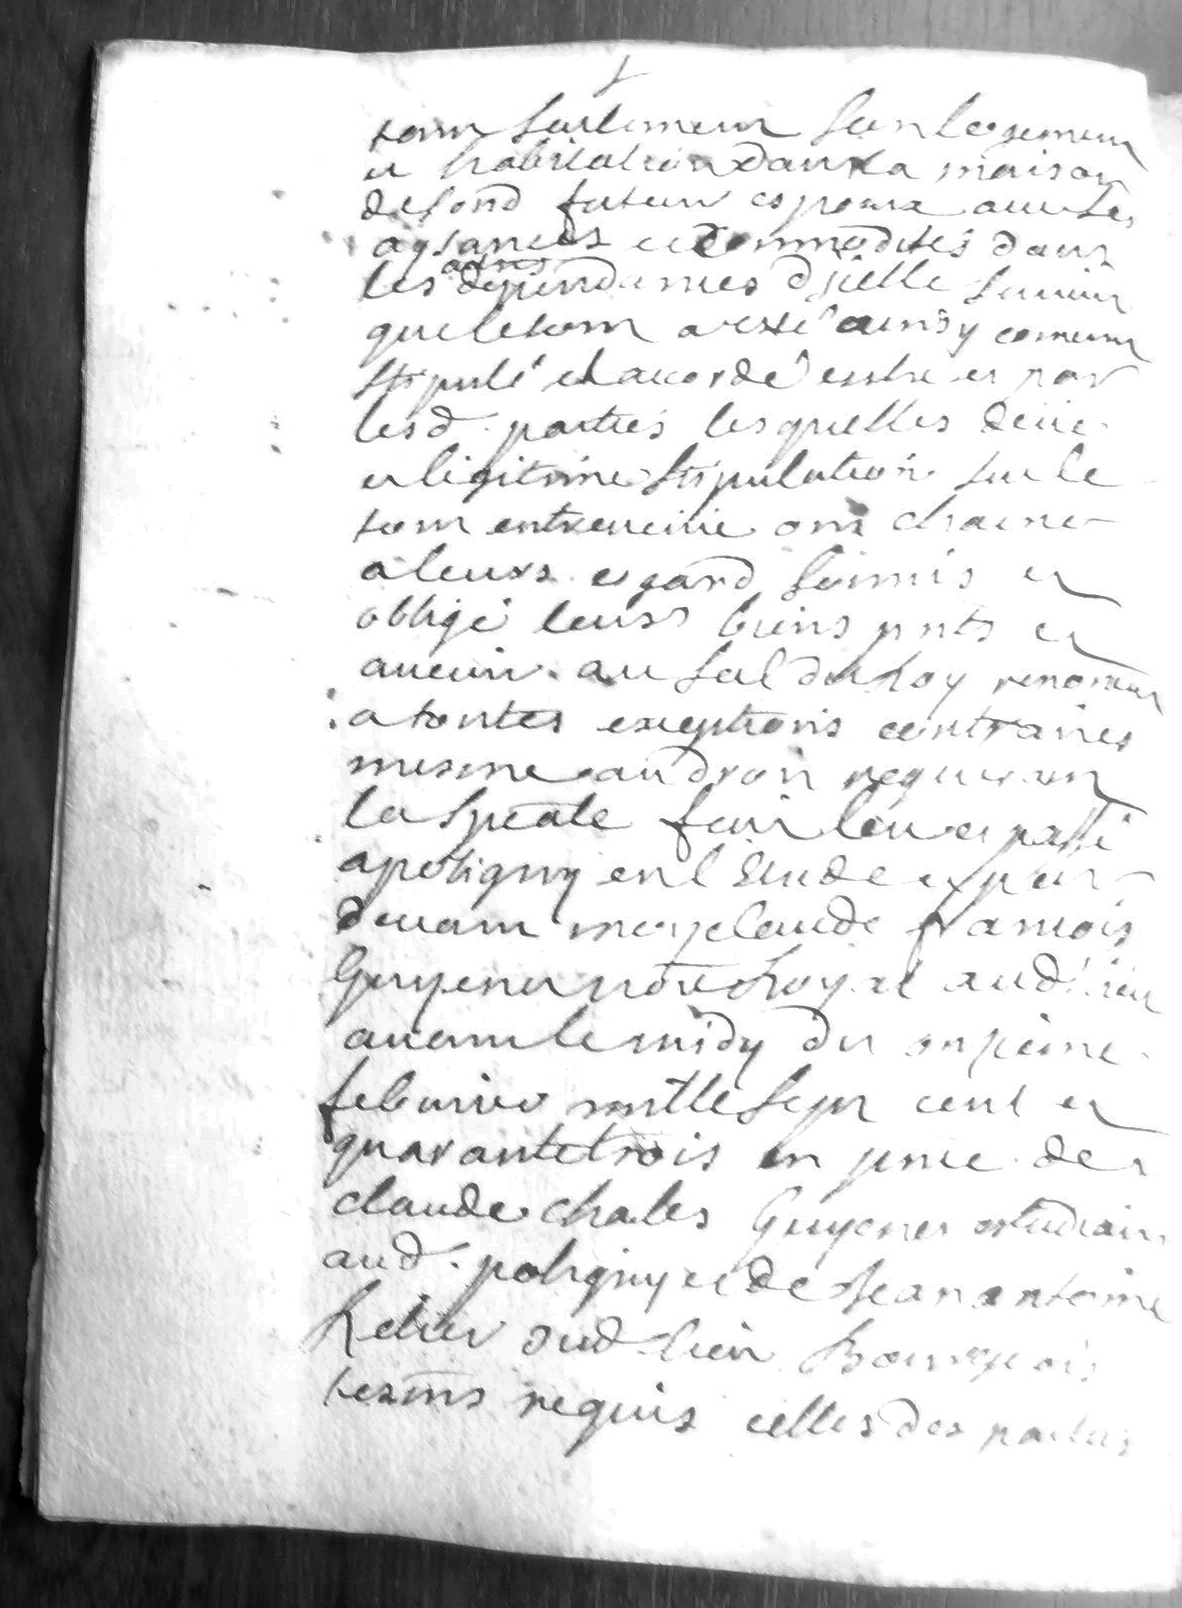 tout seulement son logement
et habitation dans la maison
desond futeur espoux avec les
aysances et commodités dans
les dependances d'jcelle suivin
que le tout a esté ainsy comme
stipulé et accordé entre et par
lesd. parties lesquelles deüe
et ligitime stipulation sur le
tout entrevenüe ont chacune
a leurs egard soumis et
obligé leurs biens pnts et
avenir au scel du Roy renoncan
a toutes exceptions contraires
mesme au droit requeran
la speãle fait leu et passé
a poligny en l'Etude et par
devant me claude francois
Guyenet notre Royal aud. lieu
avant le midy du onzieme
febvrier mille sept cent et
quarante trois en pnce de
claude charles Guyenet estudian
aud. poligny et de Jean antoine
dud lieu Bourgeois
tesmns requis celles des parties